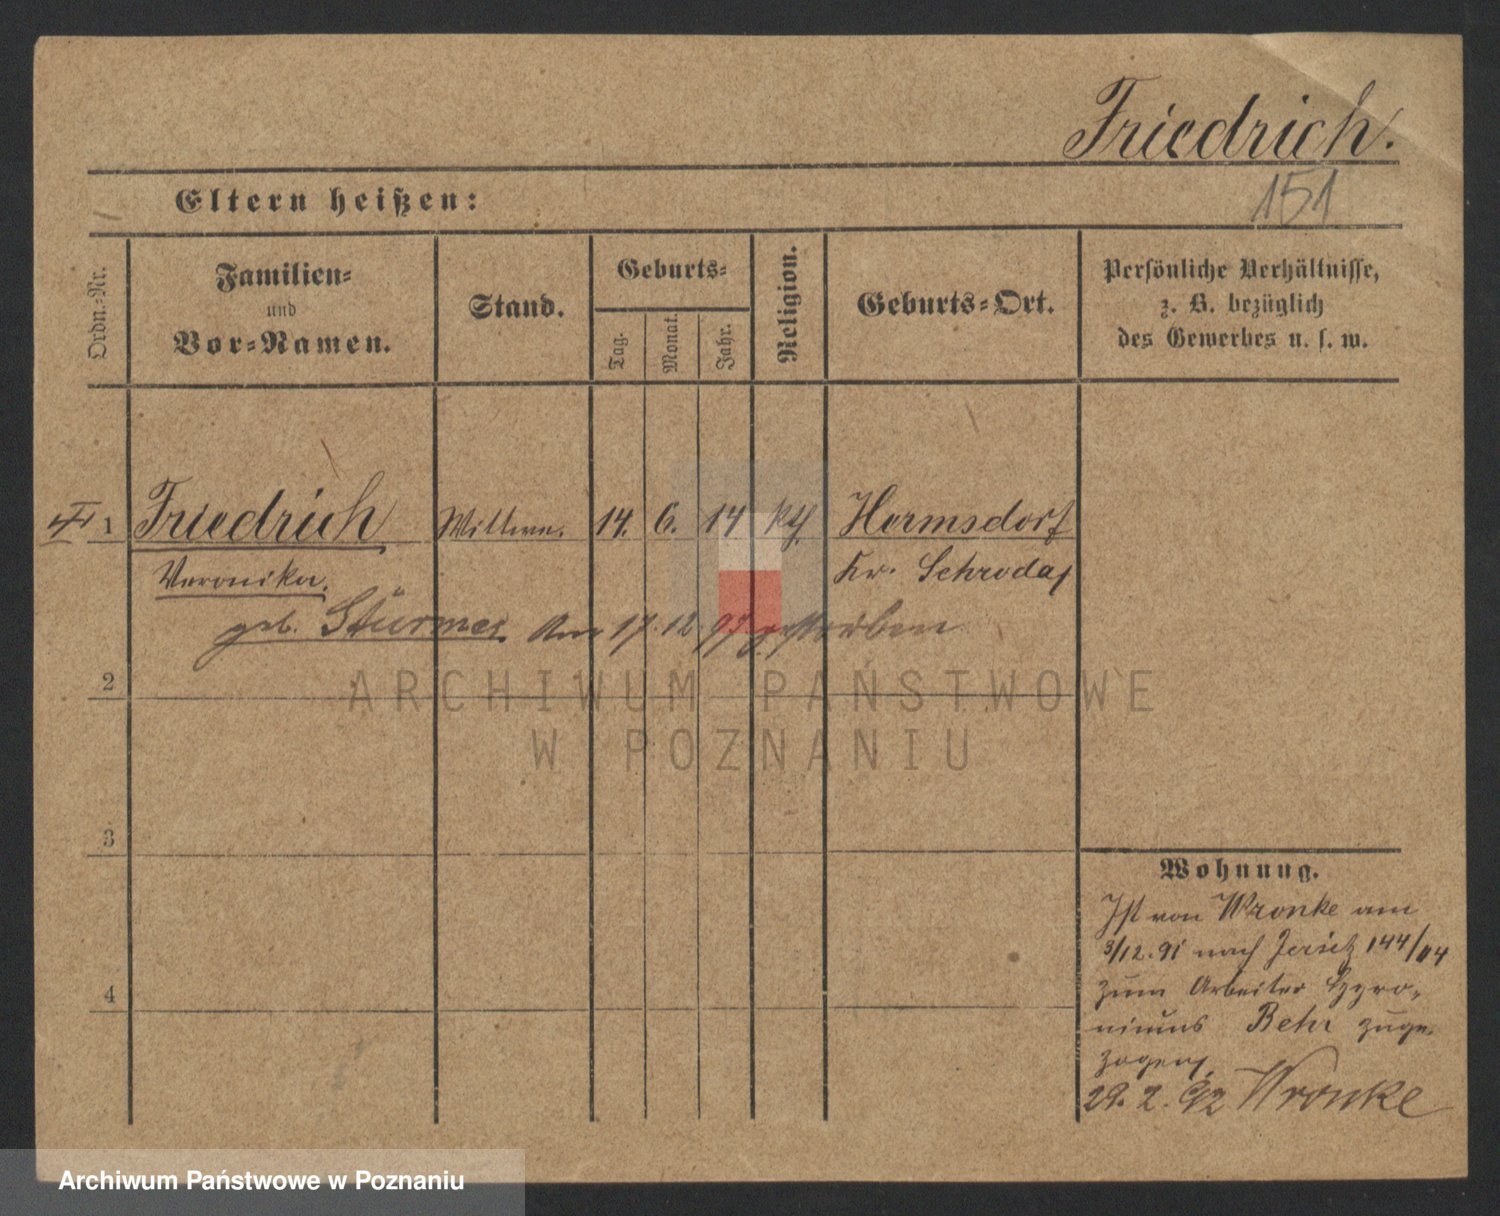 Friedrich.
151
Eltern heißen:
Ordn.-Nr.
Familien-
und
Vor-Namen.
Stand.
Geburts-
Tag.
Monat.
Jahr.
Religion.
Geburts-Ort.
Persönliche Verhältnisse,
z. B. bezüglich
des Gewerbes u. s. w.
1 Friedrich Wittwe. 14. 6. 14 kth. Hermsdorf
Veronika. Kr. Schroda
geb. Stürmer am 17. 12. gestorben
ARCHIWUM PAŃSTWOWE
W POZNANIU
2
3
4
Wohnung.
Ist von Wronke am
3/12. 91 nach Jersitz 144/
zum Arbeiter Hyro-
nimus Behr zuge-
zogen.
29. 2. 92 Wronke
Archiwum Państwowe w Poznaniu